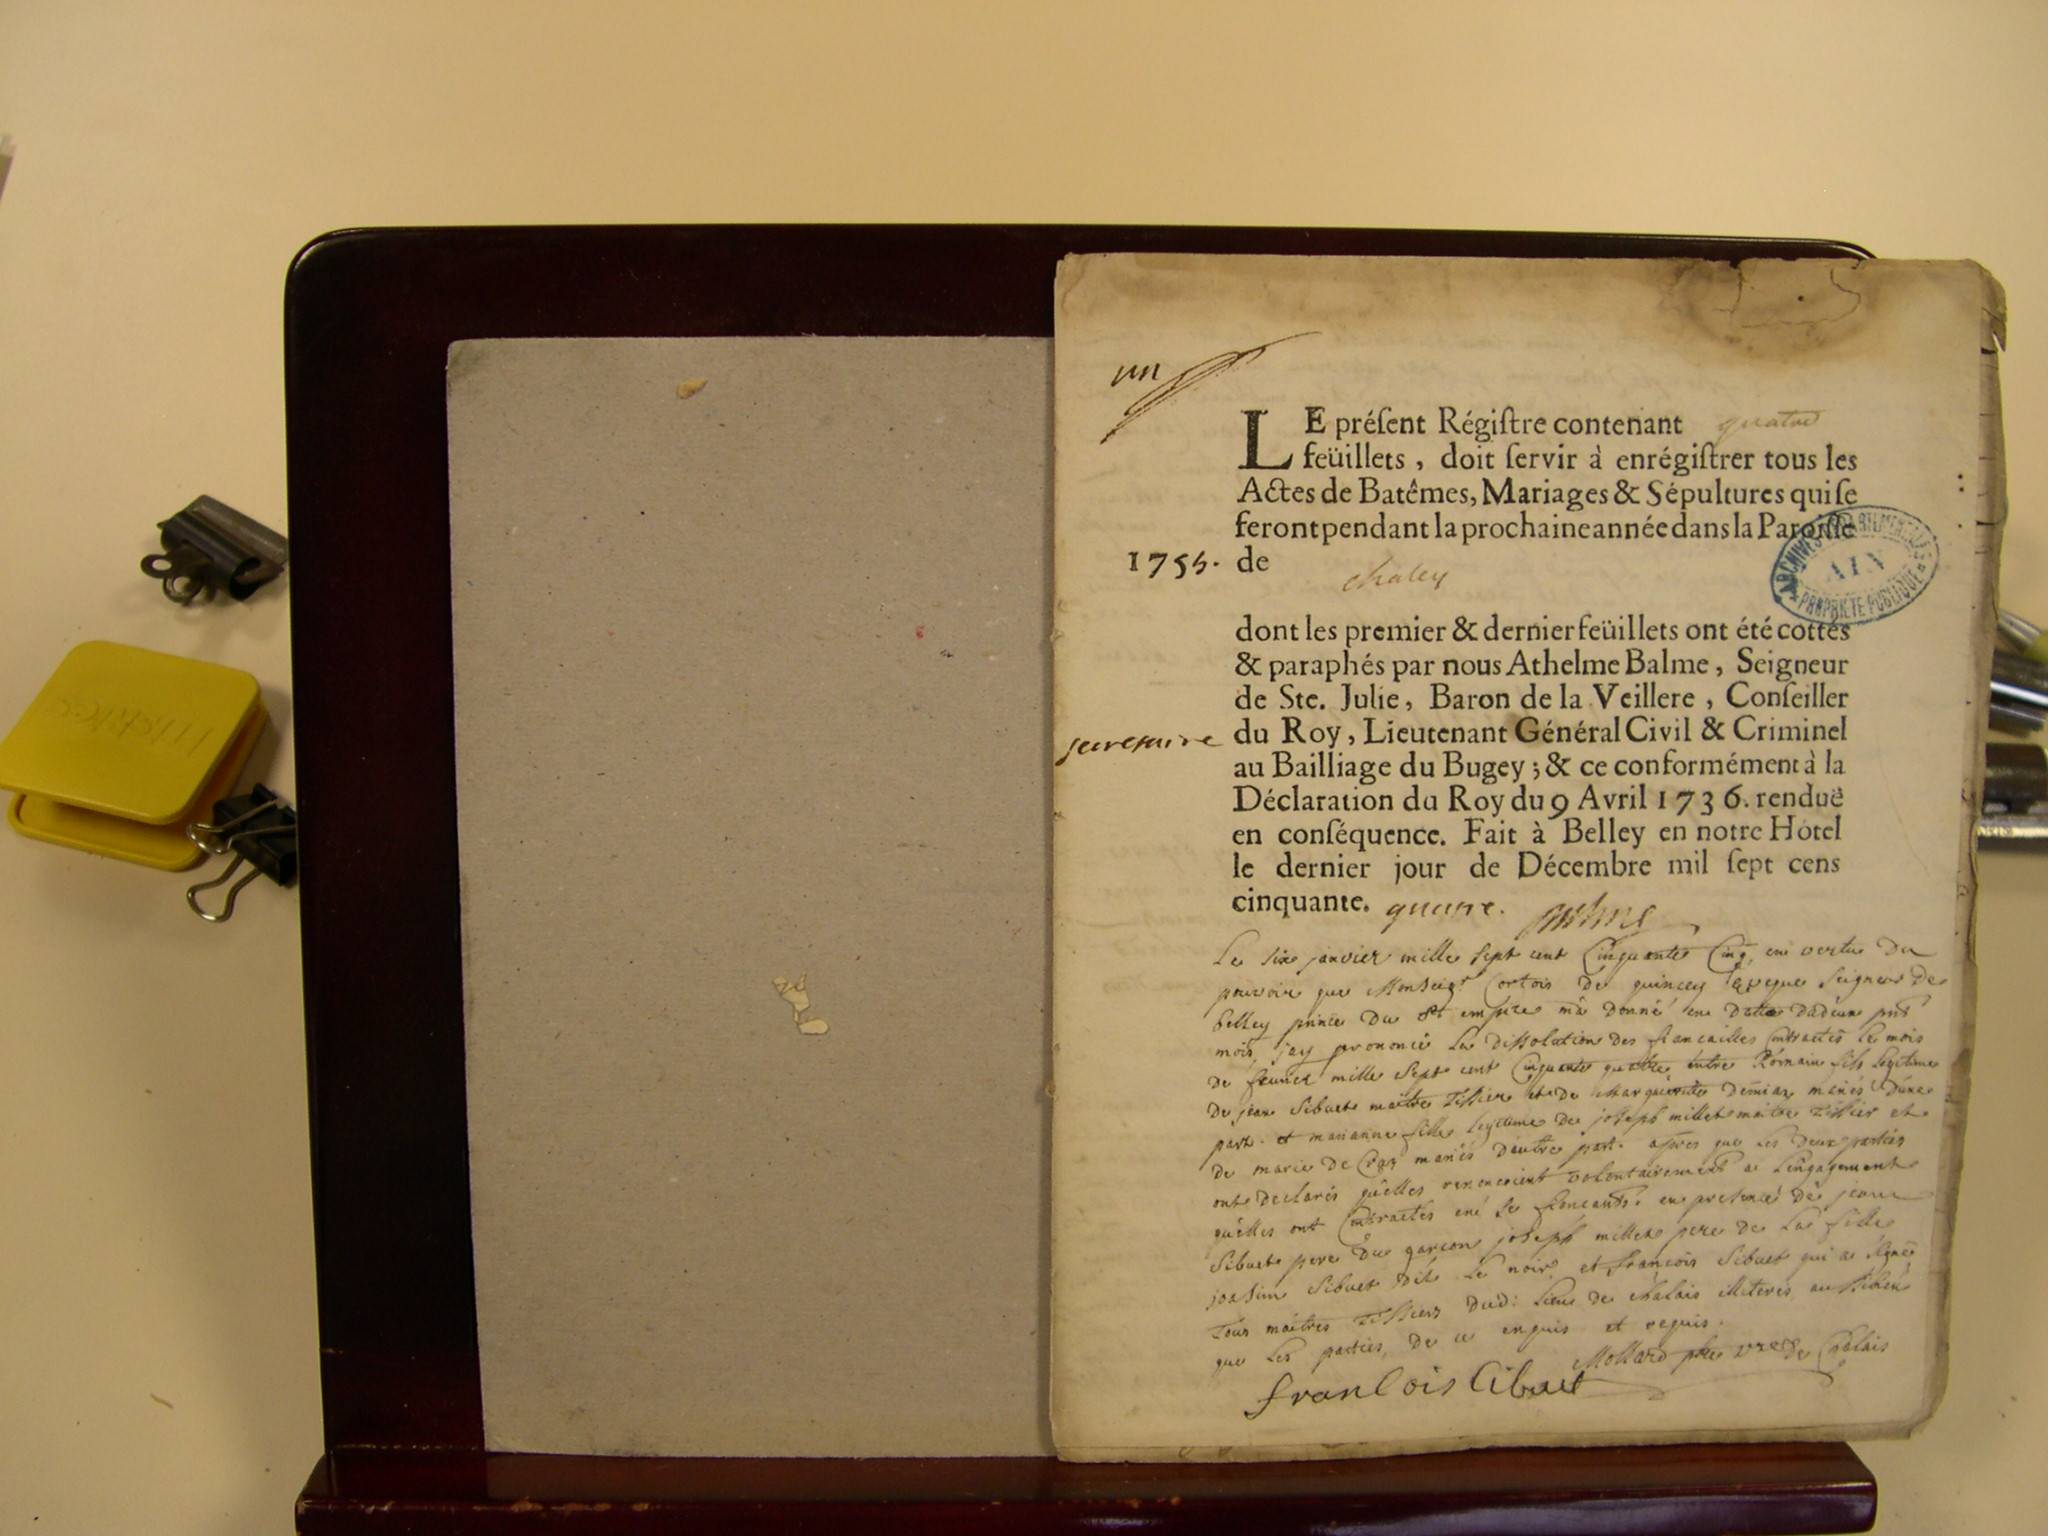 un
LE préſent Régiſtre contenant quatre
feüillets, doit ſervir à enrégiſtrer tous les
Actes de Batêmes, Mariages & Sépultures qui ſe
feront pendant la prochaine année dans la Paroiſſe
1755. de chaley
ARCHIVES DEPARTEMENTALES
AIN
* PROPRIETE PUBLIQUE *
dont les premier & dernier feüillets ont été cottés
& paraphés par nous Athelme Balme, Seigneur
de Ste. Julie, Baron de la Veillere, Conſeiller
secretaire du Roy, Lieutenant Général Civil & Criminel
au Bailliage du Bugey; & ce conformément à la
Déclaration du Roy du 9 Avril 1736. renduë
en conſéquence. Fait à Belley en notre Hôtel
le dernier jour de Décembre mil ſept cens
cinquante. quatre. Balme
Le six janvier mille sept cent Cinquante Cinq, en vertu du
pouvoir que Monseigr Cortois de quincey Eveque Seigneur de
belley prince du st empire m'a donné en datte dudeux pnt
mois, jay prononcé la dissolution des fiancailles Contractés le mois
de fevrier mille sept cent Cinquante quattre entre Romain fils legitime
de jean Sibuet maitre Tissier et de Marguerite mariés d'une
part. et marianne fille legitime de joseph millet maitre Tissier et
de marie de Cran mariés d'autre part. apres que les deux parties
ont declarés qu'elles renoncoient volontairement a l'engagement
qu'elles ont Contractés en se fiancants. en presence de jean
Sibuet pere du garcon joseph millet pere de la fille
joasim Sibuet dit le noir, et françois Sibuet qui a signé
Tous maitres Tissiers dud: lieu de chalais illiterés aussibien
que les parties, de ce enquis et requis.
Mollard ptre vre de Chalais
francois Cibuet